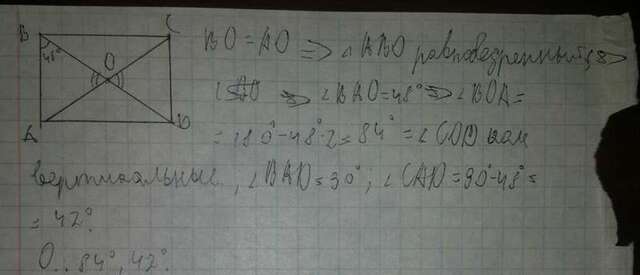 B C
48°
O
A D
BO = AO => ∠ABO равнобедренный =>
=> ∠BAO = 48° => ∠BOA =
= 180° - 48°·2 = 84° = ∠COD как
вертикальные, ∠BAD = 90°; ∠CAD = 90° - 48° =
= 42°.
О.: 84°, 42°.